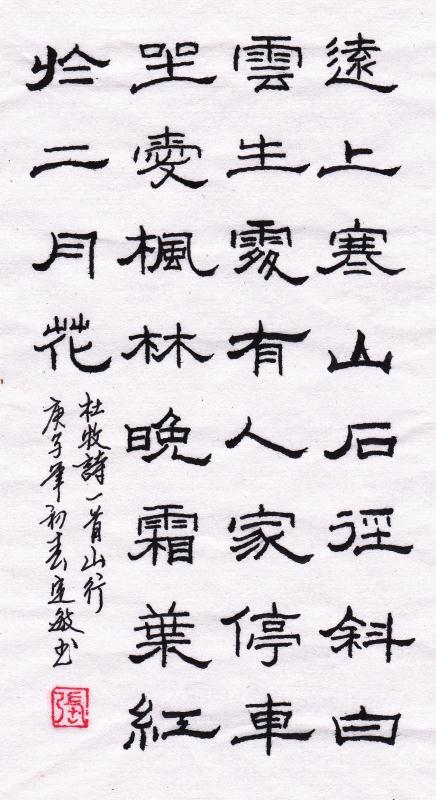 遠上寒山石徑斜白
雲生處有人家停車
坐愛楓林晚霜葉紅
於二月花
杜牧詩一首山行
庚子年初春定敏书
張